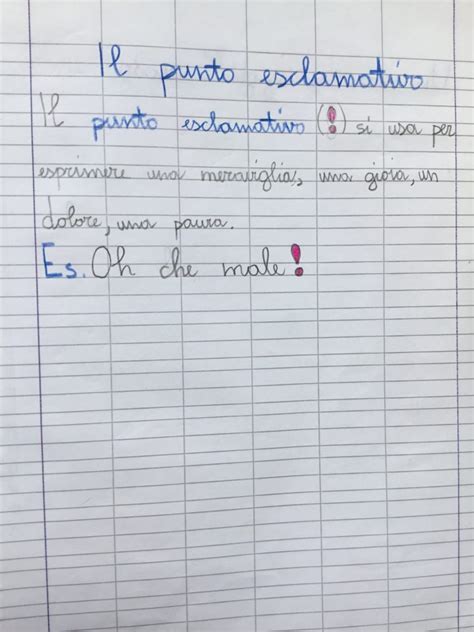 Il punto esclamativo
Il punto esclamativo (!) si usa per
esprimere una meraviglia, una gioia, un
dolore, una paura.
Es. Oh che male!